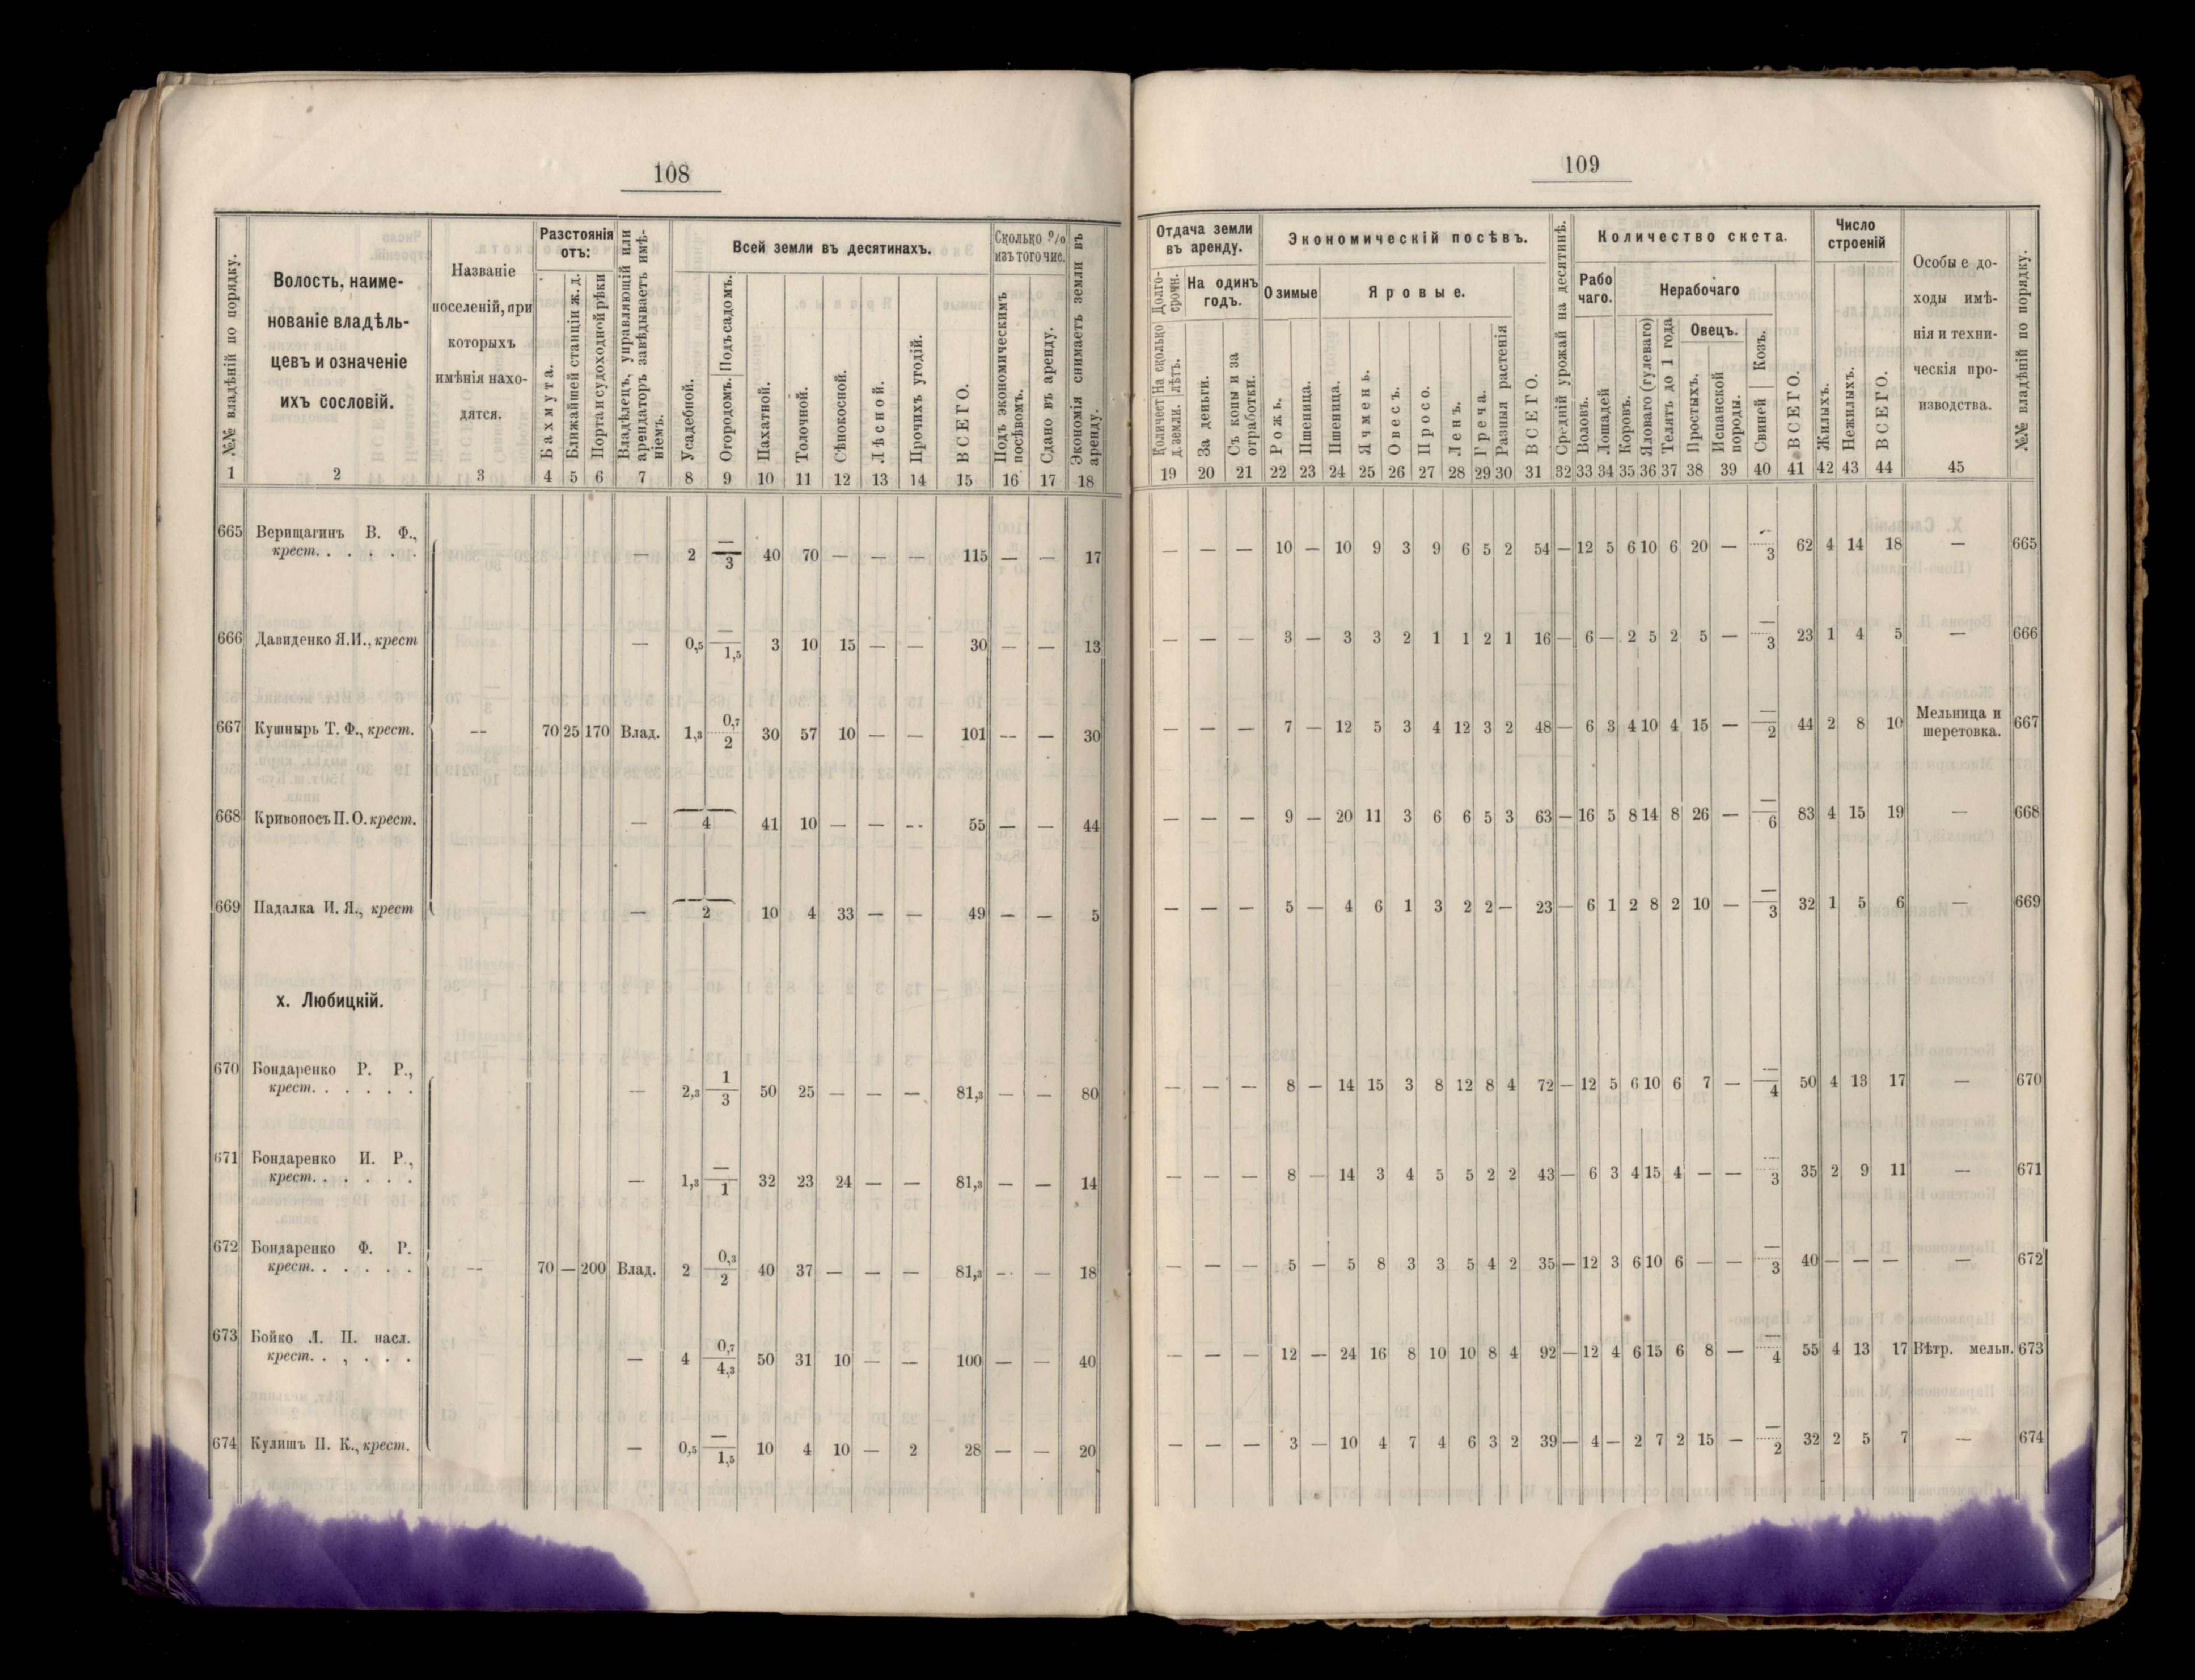 108
№№ владѣній по порядку.
Волость, наиме-
нованіе владѣль-
цевъ и означеніе
ихъ сословій.
Названіе
поселеній, при
которыхъ
имѣнія нахо-
дятся.
Разстоянія
отъ:
Бахмута.
Ближайшей станціи ж. д.
Порта и судоходной рѣки
Владѣлецъ, управляющій или
арендаторъ завѣдываетъ имѣ-
ніемъ.
Всей земли въ десятинахъ.
Усадебной.
Огородомъ. Подъ садомъ.
Пахатной.
Толочной.
Сѣнокосной.
Лѣсной.
Прочихъ угодій.
ВСЕГО.
Сколько %
изъ того чис.
Подъ экономическимъ
посѣвомъ.
Сдано въ аренду.
Экономія снимаетъ земли въ
аренду.
1 2 3 4 5 6 7 8 9 10 11 12 13 14 15 16 17 18
665 Верищагинъ В. Ф.,
крест. . . . . . — 2 —/3 40 70 — — — 115 — — 17
666 Давиденко Я.И., крест — 0,5 —/1,5 3 10 15 — — 30 — — 13
667 Кушнырь Т. Ф., крест. -- 70 25 170 Влад. 1,3 0,7/2 30 57 10 — — 101 -- — 30
668 Кривоносъ П. О. крест. — 4 41 10 — — -- 55 — — 44
669 Падалка И. Я., крест — 2 10 4 33 — — 49 — — 5
х. Любицкій.
670 Бондаренко Р. Р.,
крест. . . . . . — 2,3 1/3 50 25 — — — 81,3 — — 80
671 Бондаренко И. Р.,
крест. . . . . . — 1,3 —/1 32 23 24 — — 81,3 — — 14
672 Бондаренко Ф. Р.
крест. . . . . . -- 70 — 200 Влад. 2 0,3/2 40 37 — — — 81,3 -- — 18
673 Бойко Л. П. насл.
крест. . , . . . — 4 0,7/4,3 50 31 10 — — 100 — — 40
674 Кулишъ П. К., крест. — 0,5 —/1,5 10 4 10 — 2 28 — — 20
109
Отдача земли
въ аренду.
Долго-
срочн.
На одинъ
годъ.
Количест На сколько
д. земли. лѣтъ.
За деньги.
Съ копы и за
отработки.
Экономическій посѣвъ.
Озимые
Яровые.
Рожь.
Пшеница.
Пшеница.
Ячмень.
Овесъ.
Просо.
Ленъ.
Греча.
Разныя растенія
ВСЕГО.
Средній урожай на десятинѣ.
Количество скста.
Рабо
чаго.
Нерабочаго
Воловъ.
Лошадей
Коровъ.
Яловаго (гулеваго)
Телятъ до 1 года
Овецъ.
Простыхъ.
Испанской
породы.
Свиней Козъ.
ВСЕГО.
Число
строеній
Жилыхъ.
Нежилыхъ.
ВСЕГО.
Особые до-
ходы имѣ-
нія и техни-
ческія про-
изводства.
№№ владѣній по порядку.
19 20 21 22 23 24 25 26 27 28 29 30 31 32 33 34 35 36 37 38 39 40 41 42 43 44 45
— — — 10 — 10 9 3 9 6 5 2 54 — 12 5 6 10 6 20 — —/3 62 4 14 18 — 665
— — — 3 — 3 3 2 1 1 2 1 16 — 6 — 2 5 2 5 — —/3 23 1 4 5 — 666
— — — 7 — 12 5 3 4 12 3 2 48 — 6 3 4 10 4 15 — —/2 44 2 8 10 Мельница и
шеретовка. 667
— — — 9 — 20 11 3 6 6 5 3 63 — 16 5 8 14 8 26 — —/6 83 4 15 19 — 668
— — — 5 — 4 6 1 3 2 2 — 23 — 6 1 2 8 2 10 — —/3 32 1 5 6 — 669
— — — 8 — 14 15 3 8 12 8 4 72 — 12 5 6 10 6 7 — —/4 50 4 13 17 — 670
— — — 8 — 14 3 4 5 5 2 2 43 — 6 3 4 15 4 — — —/3 35 2 9 11 — 671
— — — 5 — 5 8 3 3 5 4 2 35 — 12 3 6 10 6 — — —/3 40 — — — — 672
— — — 12 — 24 16 8 10 10 8 4 92 — 12 4 6 15 6 8 — —/4 55 4 13 17 Вѣтр. мельн. 673
— — — 3 — 10 4 7 4 6 3 2 39 — 4 — 2 7 2 15 — —/2 32 2 5 7 — 674